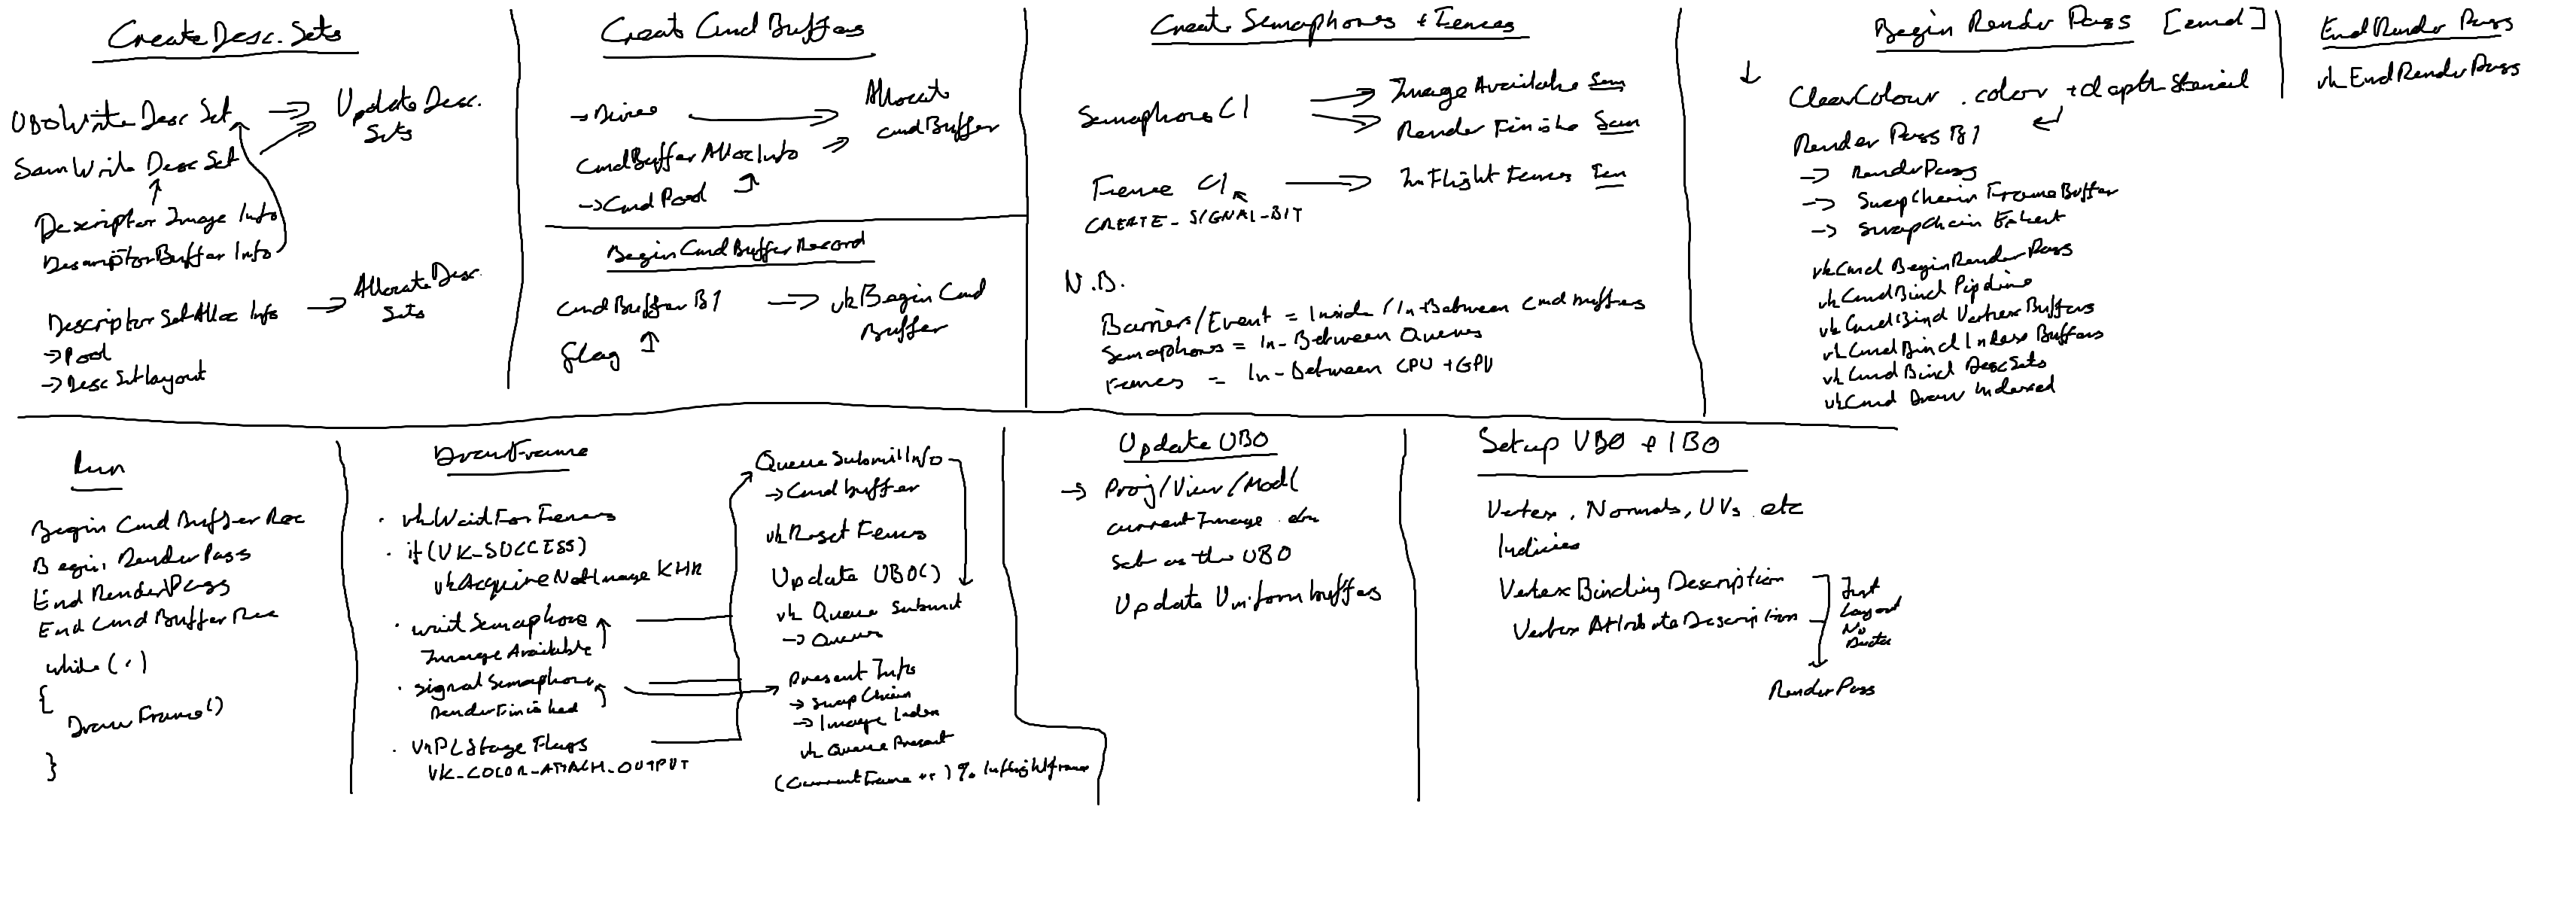 Create Desc. Sets
UBOWrite Desc Set
Update Desc. Sets
Sam Write Desc Set
Descriptor Image Info
Descriptor Buffer Info
Descriptor Set Alloc Info
Allocate Desc. Sets
→ Pool
→ Desc Set layout
Create Cmd Buffers
→ Device
Allocate cmdBuffer
CmdBuffer AllocInfo
→ Cmd Pool
Begin Cmd Buffer Record
CmdBuffer BI
vkBegin Cmd Buffer
flag
Create Semaphores + Fences
Semaphore CI
Image Available Sem
Render Finishe Sem
Fence CI
InFlight Fences Fen
CREATE_SIGNAL_BIT
N.B.
Barriers/Event = Inside / In-Between cmd buffers
Semaphores = In-Between Queues
Fences = In-between CPU + GPU
Begin Render Pass [cmd]
ClearColour .color + depth Stencil
Render Pass BI
→ RenderPass
→ SwapChain FrameBuffer
→ SwapChain Extent
vkCmd BeginRenderPass
vkCmdBind Pipeline
vkCmdBind VertexBuffers
vkCmdBind Index Buffers
vkCmdBind DescSets
vkCmd Draw Indexed
EndRender Pass
vkEndRenderPass
Run
Begin Cmd Buffer Rec
Begin RenderPass
End RenderPass
End Cmd Buffer Rec
while ( . )
{
Draw Frame()
}
DrawFrame
· vkWaitForFences
· if (VK_SUCCESS)
vkAcquireNextImage KHR
· wait Semaphore
Image Available
· signal Semaphore
RenderFinished
· VkPLStage Flags
VK_COLOR_ATTACH_OUTPUT
Queue SubmitInfo
→ Cmd buffer
vkReset Fences
Update UBO()
vk Queue Submit
→ Queue
Present Info
→ Swap Chain
→ Image Index
vk Queue Present
(CurrentFrame ++) % Inflightframe
Update UBO
→ Proj/View/Model
current Image
Set as the UBO
Update Uniform buffers
Setup VBO + IBO
Vertex, Normals, UVs. etc
Indicies
Vertex Binding Description
Vertex Attribute Description
Just Layout No Data
RenderPass